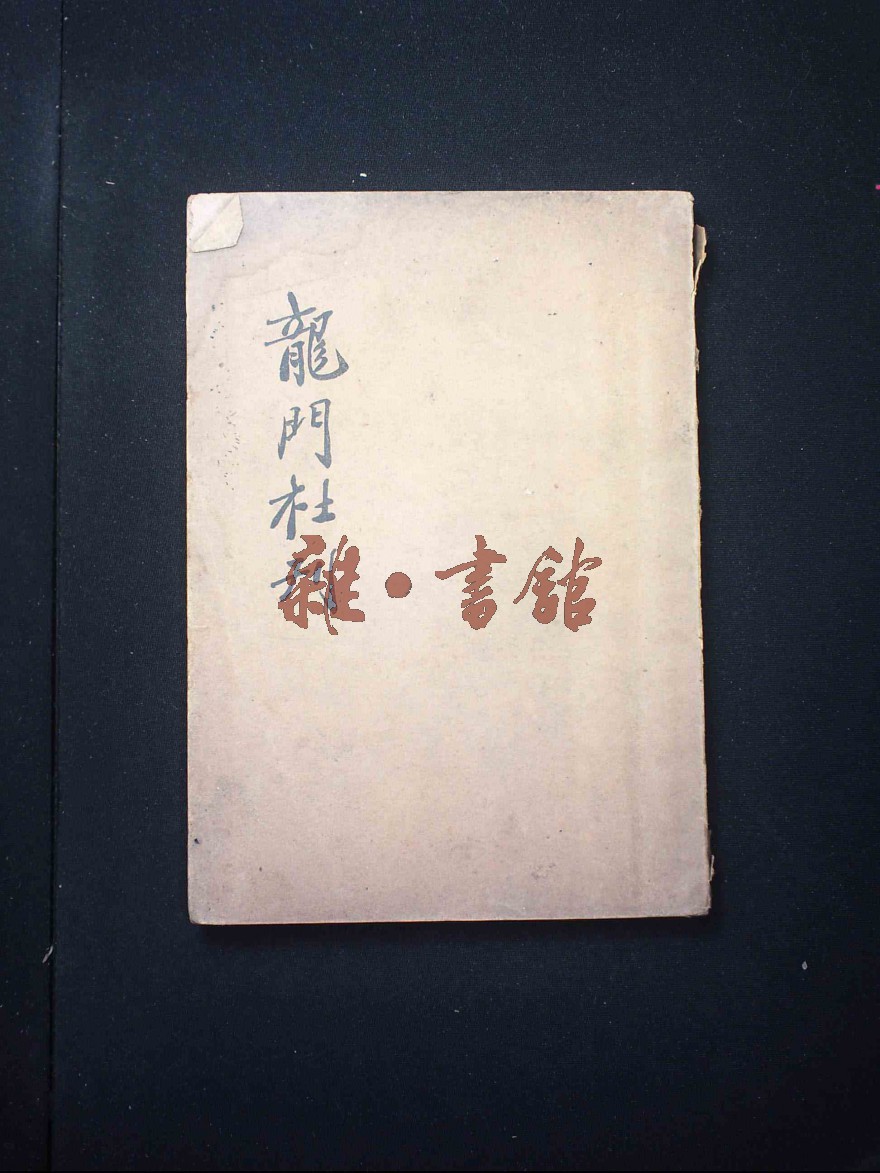 龍門杜
雜·書館